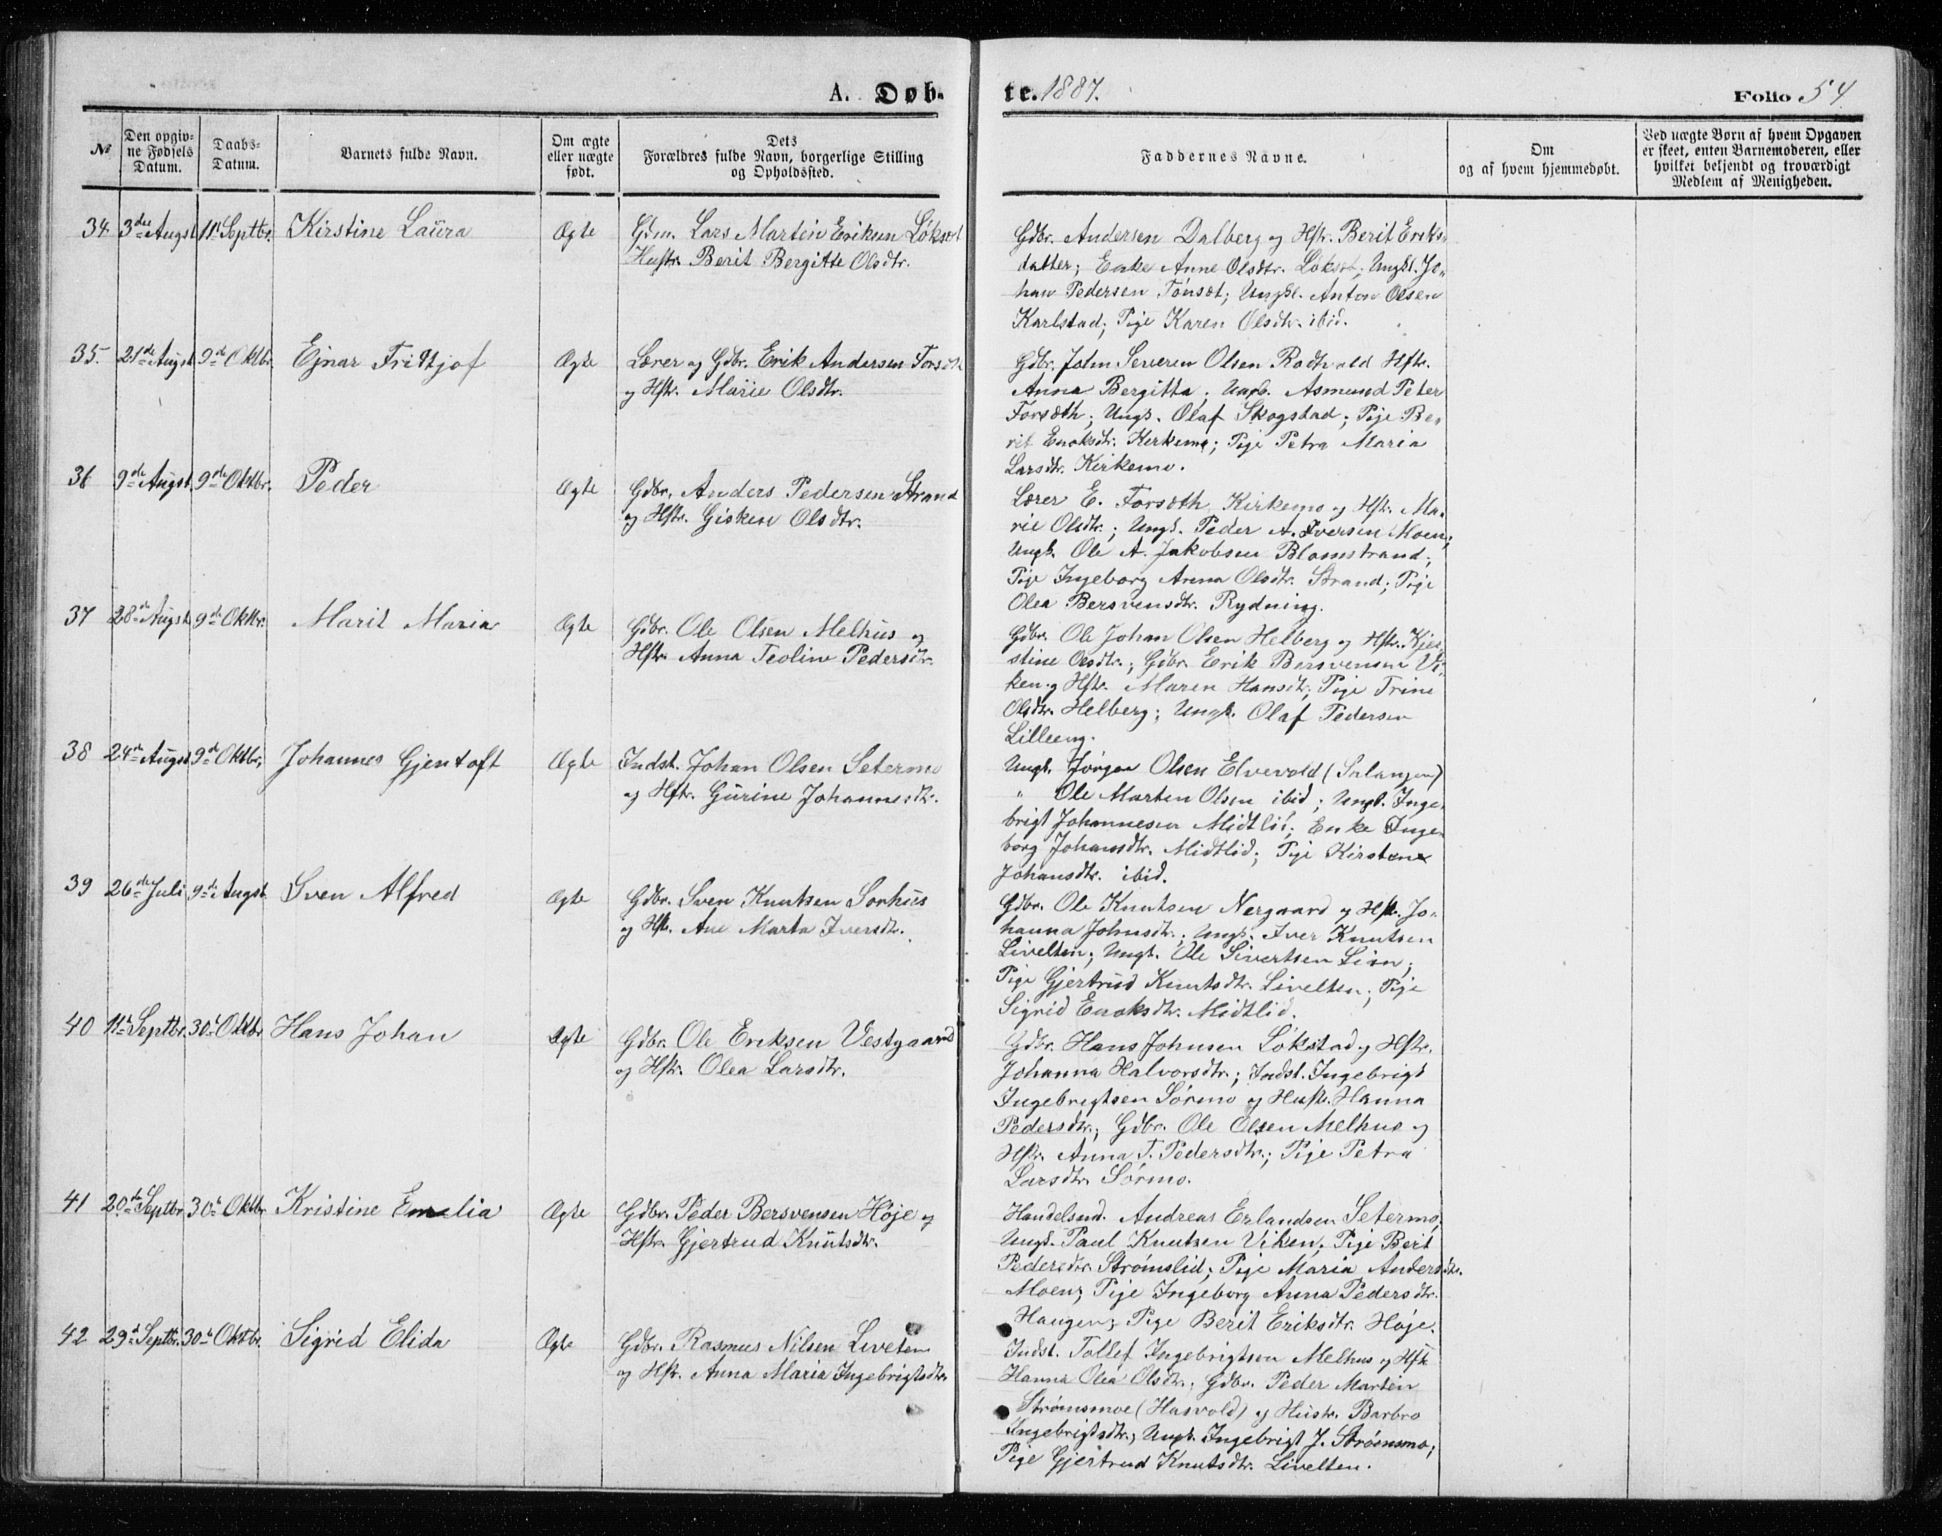 A. Døb-
te. 1887.
Folio 54
№
Den opgiv-
ne Fødsels
Datum.
Daabs-
Datum.
Barnets fulde Navn.
Om ægte
eller uægte
født.
Dets
Forældres fulde Navn, borgerlige Stilling
og Opholdssted.
Faddernes Navne.
Om
og af hvem hjemmedøbt.
Ved uægte Børn af hvem Opgaven
er skeet, enten Barnemoderen, eller
hvilket beljendt og troværdigt
Medlem af Menigheden.
34 3die Augst 11t Septbr. Kirstine Laura Ægte
Gdm. Lars Martin Eriksen Løkset
Hustr. Berit Bergitte Olsdtr.
Gdbr. Andersen Dalberg og Hstr. Berit Eriks-
datter; Enke Anne Olsdtr. Løkset; Ungkl. Jo-
han Pedersen Tønset; Ungkl. Anton Olsen
Karlstad; Pige Karen Olsdtr. ibid.
35. 21de Augst 9de Oktbr. Ejnar Fridtjof Ægte
Lærer og Gdbr. Erik Andersen Forseth
og Hstr. Marie Olsdtr.
Gdbr. John Severen Olsen Rodvold Hstr.
Anna Bergitta; Ungk. Asmund Peter
Forsæth; Ungk. Olaf Skogstad; Pige Be-
rit Enoksdtr. Kirkemo; Pige Petra Maria
Larsdtr. Kirkemo.
36 9de Augst. 9de Oktbr. Peder Ægte
Gdbr. Anders Pedersen Strand
og Hstr. Gisken Olsdtr.
Lærer E. Forsæth, Kirkemo og Hstr. Ma-
rie Olsdtr.; Ungk. Peder A. Iversen Moen;
Ungk. Ole A. Jakobsen Blomstrand;
Pige Ingeborg Anna Olsdtr. Strand; Pige
Olea Bersvensdtr. Rydning.
37 28de Augst 9de Oktbr. Marit Maria Ægte
Gdbr. Ole Olsen Melhus og
Hstr. Anna Teoline Pedersdtr.
Gdbr. Ole Johan Olsen Helberg og Hstr. Kjer-
stine Olsdtr.; Gdbr. Erik Bersvensen Vi-
ken og Hstr. Maren Hansdtr; Pige Trine
Olsdtr. Helberg; Ungk. Olaf Pedersen
Lilleeng.
38 24de Augst 9de Oktbr. Johannes Gjentoft Ægte
Indst. Johan Olsen Setermo
og Hstr. Gurine Johannesdtr.
Ungk. Jørgen Olsen Elvevold (Salangen)
" Ole Marten Olsen ibid; Ungk. Inge-
brigt Johannesen Midtlid; Enke Inge-
borg Johansdtr. Midtlid; Pige Kirsten
Johansdtr. ibid.
39 26de Juli 9de Augst. Sven Alfred Ægte
Gdbr. Sven Knutsen Sørhus
og Hstr. Ane Marta Iversdtr.
Gdbr. Ole Knutsen Nergaard og Hstr. Jo-
hanna Johnsdtr.; Ungk. Iver Knutsen
Livelten; Ungk. Ole Sivertsen Lien;
Pige Gjertrud Knutsdtr. Livelten; Pige
Sigrid Enoksdtr. Midtlid.
40 11te Septbr. 30t Oktbr Hans Johan Ægte
Gdbr. Ole Eriksen Vestgaard
og Hstr. Olea Larsdtr.
Gdbr. Hans Johnsen Løkstad og Hstr.
Johanna Halvorsdtr.; Indst. Ingebrigt
Ingebrigtsen Sørmo og Hustr. Hanna
Pedersdtr.; Gdbr. Ole Olsen Melhus og
Hstr. Anna T. Pedersdtr.; Pige Petra
Larsdtr. Sørmo.
41 20de Septbr. 30te Oktbr. Kristine Emelia Ægte
Gdbr. Peder Bersvensen Høje og
Hstr. Gjertrud Knutsdtr.
Handelsmd. Andreas Erlandsen Setermo;
Ungk. Paul Knutsen Viken; Pige Berit
Pedersdtr. Strømslid; Pige Maria Andersdtr.
Moen; Pige Ingeborg Anna Pedersdtr.
Haugen; Pige Berit Eriksdtr. Høje.
42 29d Septbr. 30te Oktbr. Sigrid Elida Ægte
Gdbr. Rasmus Nilsen Liveten
og Hstr. Anna Maria Ingebrigtsdtr.
Indst. Tollef Ingebrigtsen Melhus og Hstr.
Hanna Olea Olsdtr.; Gdbr. Peder Martin
Strømsmoe (Hasvold) og Hustr. Barbro
Ingebrigtsdtr.; Ungk. Ingebrigt J. Strømsmo;
Pige Gjertrud Knutsdtr. Livelten.